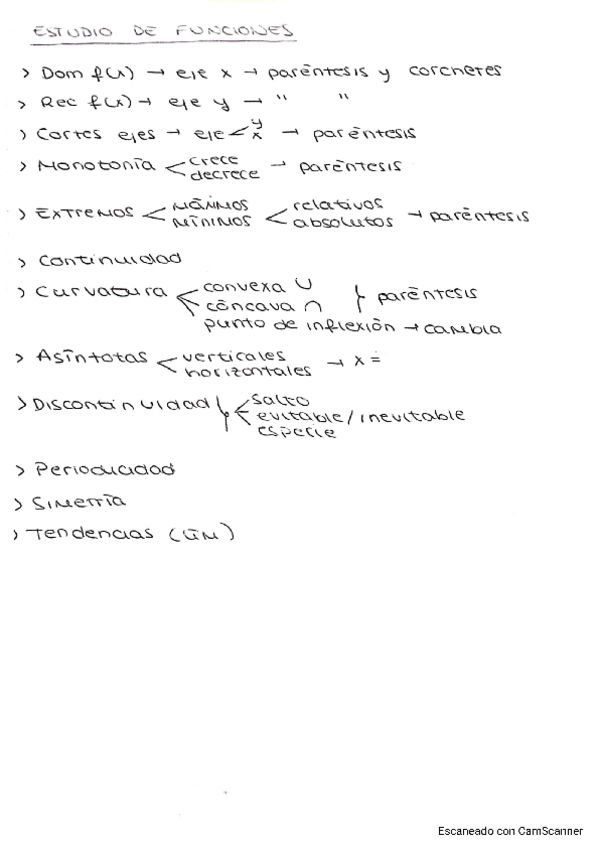 ESTUDIO DE FUNCIONES
> Dom f(x) → eje x → paréntesis y corchetes
> Rec f(x) → eje y → " "
> Cortes ejes → eje < y x → paréntesis
> Monotonía < crece decrece → paréntesis
> Extremos < máximos mínimos < relativos absolutos → paréntesis
> Continuidad
> Curvatura < convexa ∪
cóncava ∩ } paréntesis
punto de inflexión → cambia
> Asíntotas < verticales horizontales → x =
> Discontinuidad < salto
evitable/inevitable
especie
> Periodicidad
> Simetría
> Tendencias (lím)
Escaneado con CamScanner